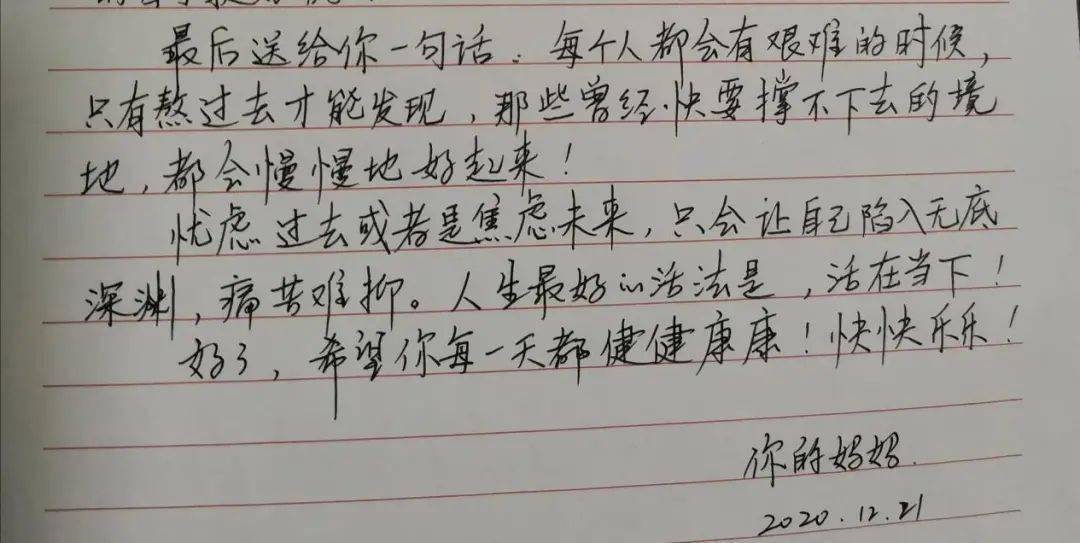 最后送给你一句话：每个人都会有艰难的时候，
只有熬过去才能发现，那些曾经快要撑不下去的境
地，都会慢慢地好起来！
忧虑过去或者是焦虑未来，只会让自己陷入无底
深渊，痛苦难抑。人生最好的活法是，活在当下！
好了，希望你每一天都健健康康！快快乐乐！
你的妈妈.
2020.12.21